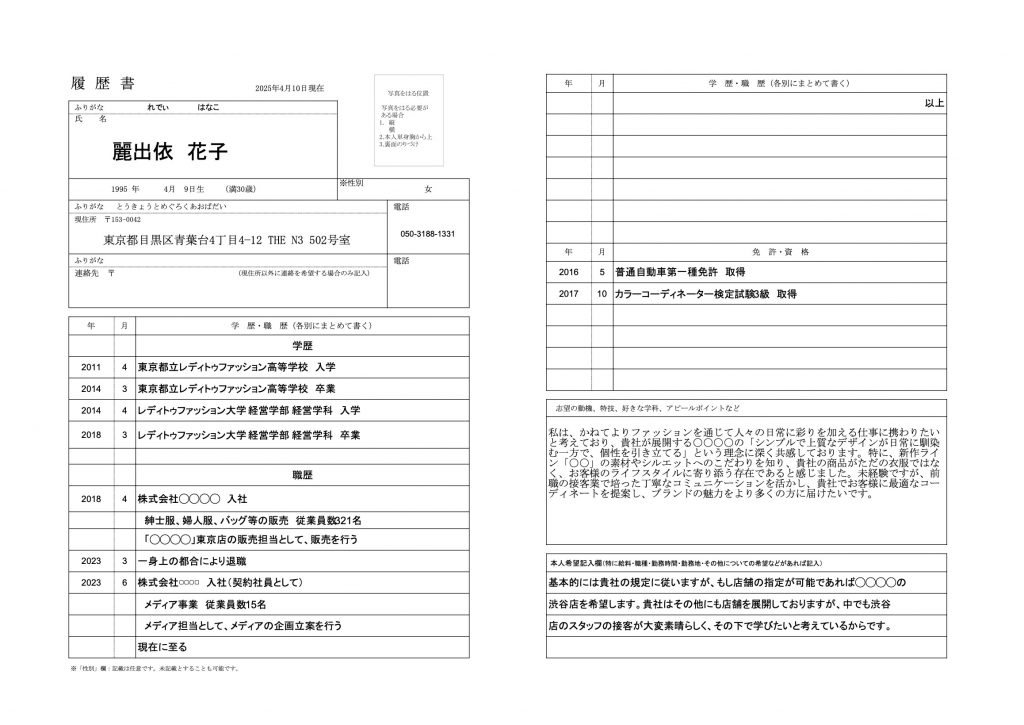 履歴書
2025年4月10日現在
写真をはる位置
写真をはる必要が
ある場合
1. 縦
横
2.本人単身胸から上
3.裏面のりづけ
ふりがな れでぃ はなこ
氏 名
麗出依 花子
1995 年 4月 9日生 (満30歳)
※性別
女
ふりがな とうきょうとめぐろくあおばだい
現住所 〒153-0042
東京都目黒区青葉台4丁目4-12 THE N3 502号室
電話
050-3188-1331
ふりがな
連絡先 〒 (現住所以外に連絡を希望する場合のみ記入)
電話
年 月 学 歴・職 歴(各別にまとめて書く)
学歴
2011 4 東京都立レディトゥファッション高等学校 入学
2014 3 東京都立レディトゥファッション高等学校 卒業
2014 4 レディトゥファッション大学 経営学部 経営学科 入学
2018 3 レディトゥファッション大学 経営学部 経営学科 卒業
職歴
2018 4 株式会社〇〇〇〇 入社
紳士服、婦人服、バッグ等の販売 従業員数321名
「〇〇〇〇」東京店の販売担当として、販売を行う
2023 3 一身上の都合により退職
2023 6 株式会社○○○○ 入社(契約社員として)
メディア事業 従業員数15名
メディア担当として、メディアの企画立案を行う
現在に至る
※「性別」欄:記載は任意です。未記載とすることも可能です。
年 月 学 歴・職 歴(各別にまとめて書く)
以上
年 月 免 許・資 格
2016 5 普通自動車第一種免許 取得
2017 10 カラーコーディネーター検定試験3級 取得
志望の動機、特技、好きな学科、アピールポイントなど
私は、かねてよりファッションを通じて人々の日常に彩りを加える仕事に携わりたい
と考えており、貴社が展開する〇〇〇〇の「シンプルで上質なデザインが日常に馴染
む一方で、個性を引き立てる」という理念に深く共感しております。特に、新作ライ
ン「〇〇」の素材やシルエットへのこだわりを知り、貴社の商品がただの衣服ではな
く、お客様のライフスタイルに寄り添う存在であると感じました。未経験ですが、前
職の接客業で培った丁寧なコミュニケーションを活かし、貴社でお客様に最適なコー
ディネートを提案し、ブランドの魅力をより多くの方に届けたいです。
本人希望記入欄(特に給料・職種・勤務時間・勤務地・その他についての希望などがあれば記入)
基本的には貴社の規定に従いますが、もし店舗の指定が可能であれば〇〇〇〇の
渋谷店を希望します。貴社はその他にも店舗を展開しておりますが、中でも渋谷
店のスタッフの接客が大変素晴らしく、その下で学びたいと考えているからです。